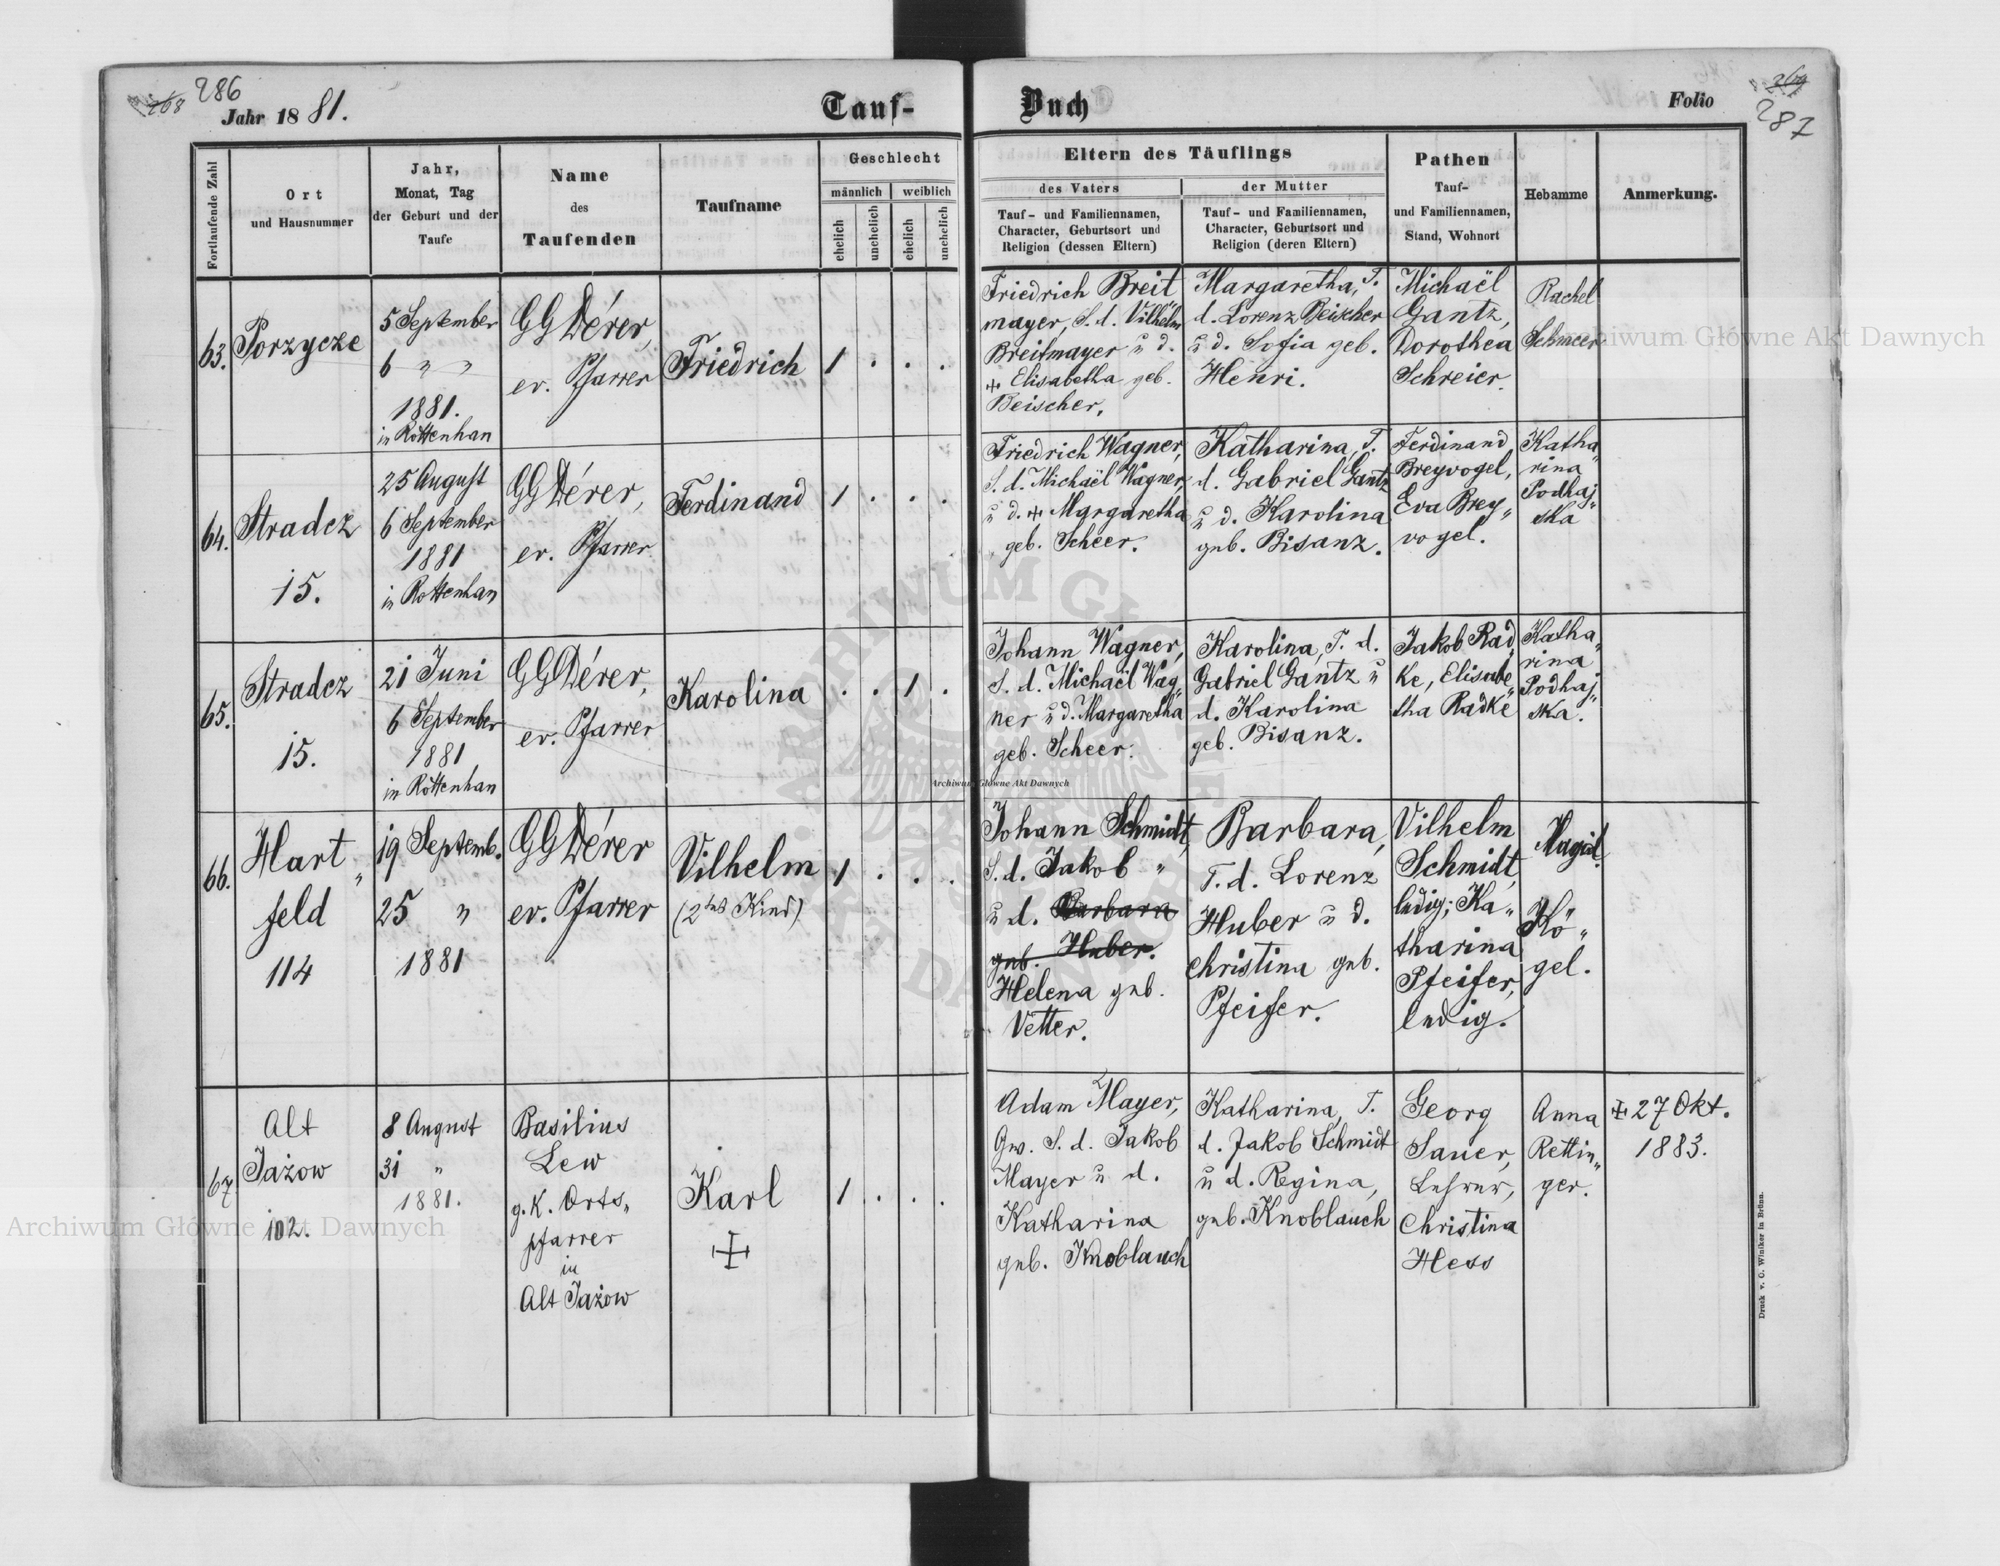 268
286
Jahr 1881.
Tauf-
Buch
Folio
269
287
Fortlaufende Zahl
Ort
und Hausnummer
Jahr,
Monat, Tag
der Geburt und der
Taufe
Name
des
Taufenden
Taufname
Geschlecht
männlich
weiblich
ehelich
unehelich
ehelich
unehelich
Eltern des Täuflings
des Vaters
Tauf- und Familiennamen,
Character, Geburtsort und
Religion (dessen Eltern)
der Mutter
Tauf- und Familiennamen,
Character, Geburtsort und
Religion (deren Eltern)
Pathen
Tauf-
und Familiennamen,
Stand, Wohnort
Hebamme
Anmerkung.
63.
Porzycze
5 September
6 " "
1881.
in Rottenhan
GGDérer,
ev. Pfarrer
Friedrich
1 . . .
Friedrich Breit
mayer, S. d. Vilhelm
Breitmayer u d.
+ Elisabetha geb.
Beischer.
Margaretha, T.
d. Lorenz Beischer
u d. Sofia geb.
Henri.
Michaël
Gantz,
Dorothea
Schreier.
Rachel
Schmeer
64.
Stradcz
15.
25 August
6 September
1881
in Rottenhan
GGDérer,
ev. Pfarrer
Ferdinand
1 . . .
Friedrich Wagner,
S. d. Michaël Wagner
u d. + Margaretha
geb. Scheer.
Katharina, T.
d. Gabriel Gantz
u d. Karolina
geb. Bisanz.
Ferdinand
Breyvogel,
Eva Brey„
vogel.
Katha„
rina
Podhaj„
ska
65.
Stradcz
15.
21 Juni
6 September
1881
in Rottenhan
GGDérer,
ev. Pfarrer
Karolina
. . 1 .
Johann Wagner,
S. d. Michaël Wag„
ner u d. Margaretha
geb. Scheer.
Karolina, T. d.
Gabriel Gantz u
d. Karolina
geb. Bisanz.
Jakob Rad„
ke, Elisabe„
tha Radke
Katha„
rina
Podhaj„
ska.
66.
Hart„
feld
114
19 Septemb.
25 "
1881
GGDérer
ev. Pfarrer
Vilhelm
(2tes Kind)
1 . . .
Johann Schmidt,
S. d. Jakob "
u d. Barbara
geb. Huber.
Helena geb.
Vetter.
Barbara,
T. d. Lorenz
Huber u d.
Christina geb.
Pfeifer.
Vilhelm
Schmidt,
ledig; Ka„
tharina
Pfeifer,
ledig.
Magd.
Kö„
gel.
67.
Alt
Jażow
102.
8 August
31 "
1881.
Basilius
Lew
g. k. Orts„
pfarrer
in
Alt Jażow
Karl
+
1 . . .
Adam Mayer,
Gw. S. d. Jakob
Mayer u d.
Katharina
geb. Knoblauch
Katharina, T.
d. Jakob Schmidt
u d. Regina,
geb. Knoblauch
Georg
Sauer,
Lehrer,
Christina
Hess
Anna
Rettin„
ger.
+ 27 Okt.
1883.
Druck v. G. Winiker in Brünn.
Archiwum Główne Akt Dawnych
Archiwum Główne Akt Dawnych
Archiwum Główne Akt Dawnych